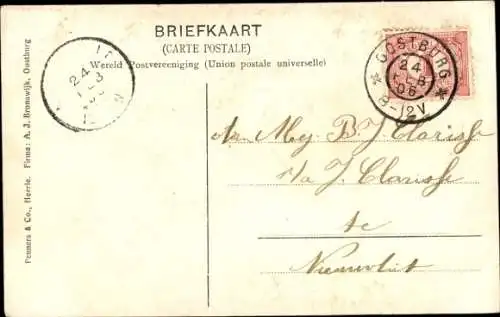 BRIEFKAART
(CARTE POSTALE)
Wereld Postvereeniging (Union postale universelle)
OOSTBURG
24
FEB
06
8-12V
24
FEB
Aan Mej. B. J. Clarisse
p/a J. Clarisse
te
Nieuwvliet
Penners & Co., Heerle. Firma: A. J. Bronswijk, Oostburg